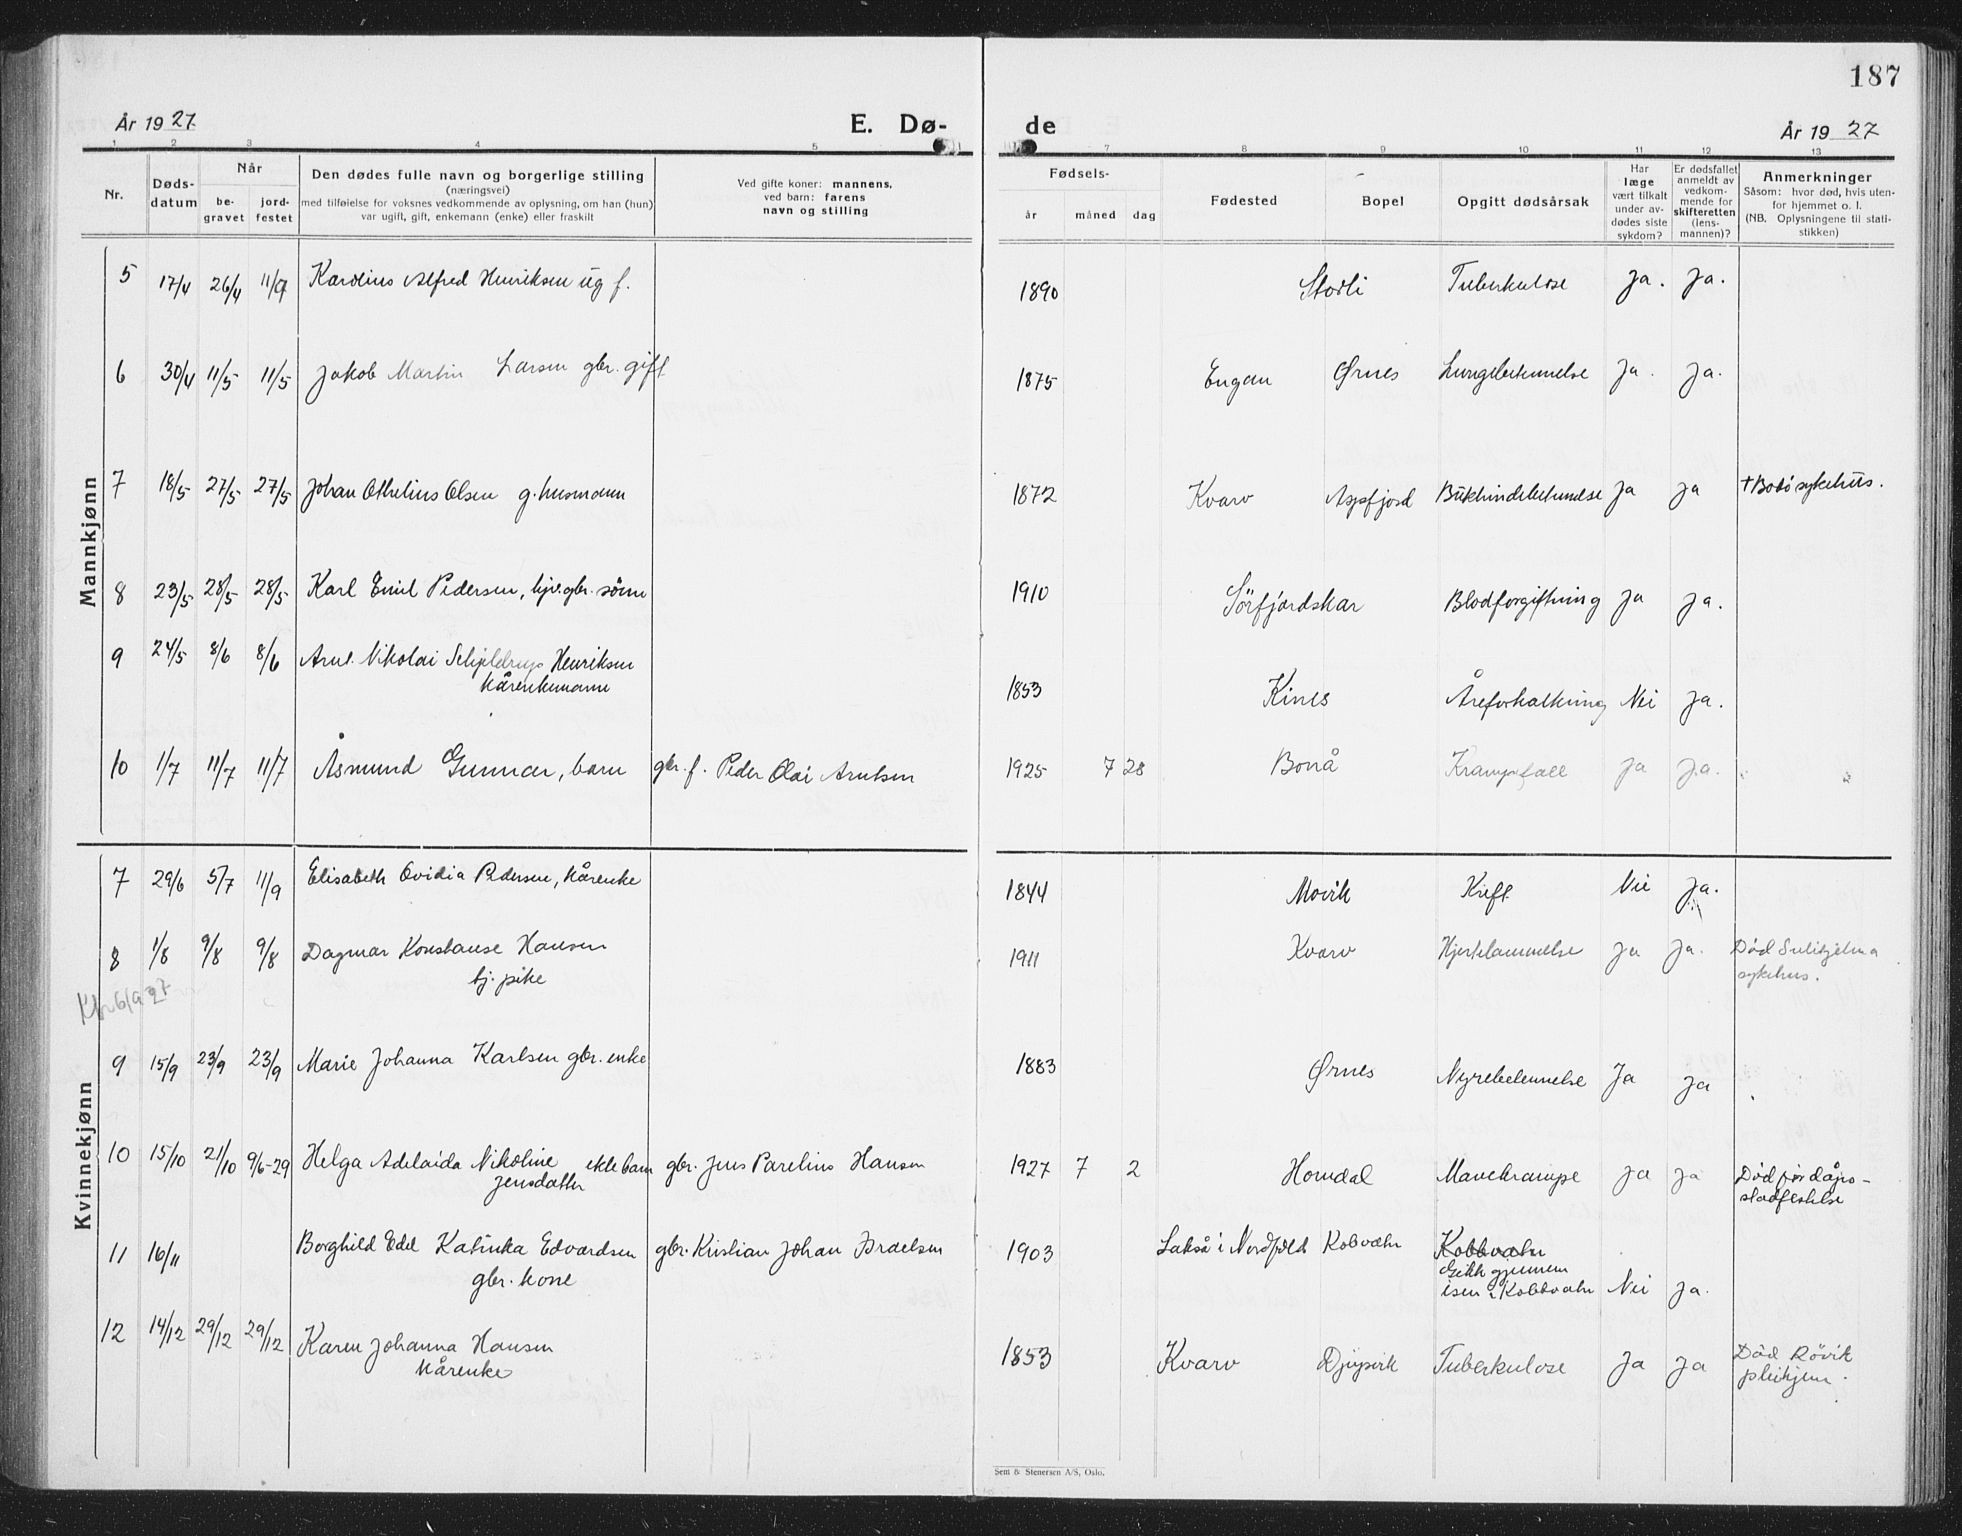 187
År 1927.
E. Dø-
de
År 1927
1 2 3 4 5 7 8 9 10 11 12 13
Nr.
Døds-
datum
Når
be-
gravet
jord-
festet
Den dødes fulle navn og borgerlige stilling
(næringsvei)
med tilføielse for voksnes vedkommende av oplysning, om han (hun)
var ugift, gift, enkemann (enke) eller fraskilt
Ved gifte koner: mannens,
ved barn: farens
navn og stilling
Fødsels-
år måned dag
Fødested
Bopel
Opgitt dødsårsak
Har
læge
vært tilkalt
under av-
dødes siste
sykdom?
Er dødsfallet
anmeldt av
vedkom-
mende for
skifteretten
(lens-
mannen)?
Anmerkninger
Såsom: hvor død, hvis uten-
for hjemmet o. l.
(NB. Oplysningene til stati-
stikken)
Mannkjønn
5 17/4 26/4 11/9 Karolius Alfred Henriksen ug f. 1890 Storli Tuberkulose Ja. Ja.
6 30/4 11/5 11/5 Jakob Martin Larsen gbr. gift 1875 Engan Ørnes Lungebetennelse Ja. Ja.
7 18/5 27/5 27/5 Johan Othelius Olsen g. husmann 1872 Kvarv Aspfjord Bukhindebetennelse Ja Ja + Bodö sykehus.
8 23/5 28/5 28/5 Karl Emil Pedersen, hjv. gbr. sönn 1910 Sörfjordskar Blodforgiftning Ja Ja.
9 24/5 8/6 8/6 Arnt Nikolai Schjeldrup Henriksen
kårenkemann 1853 Kines Åreforkalkning Nei Ja.
10 1/7 11/7 11/7 Åsmund Gunnar, barn gbr. f. Peder Olai Arntsen 1925 7 28 Bonå Krampefall Ja Ja.
Kvinnekjønn
7 29/6 5/7 11/9 Elisabeth Ovidia Pedersen, kårenke 1844 Movik Kreft Nei Ja.
8 1/8 9/8 9/8 Dagmar Konstanse Hansen
tj. pike 1911 Kvarv Hjertelammelse Ja Ja. Död Sulitjelma
sykehus.
6/9 27
9 15/9 23/9 23/9 Marie Johanna Karlsen gbr. enke 1883 Ørnes Nyrebetennelse Ja Ja
10 15/10 21/10 9/6-29 Helga Adelaida Nikoline ekte barn gbr. Jens Parelius Hansen 1927 7 2 Horndal Mavekrampe Ja Ja Död för dåps-
Jensdatter stadfestelse
11 16/11 Borghild Edel Katinka Edvardsen gbr. Kristian Johan Israelsen 1903 Lakså i Nordfold Kobvatn Kobbvatn
gbr. kone Gikk gjennem
isen i Kobbvatn Nei Ja.
12 14/12 29/12 29/12 Karen Johanna Hansen
kårenke 1853 Kvarv Djupvik Tuberkulose Ja Ja Död Rövik
pleihjem.
Sem & Stenersen A/S, Oslo.